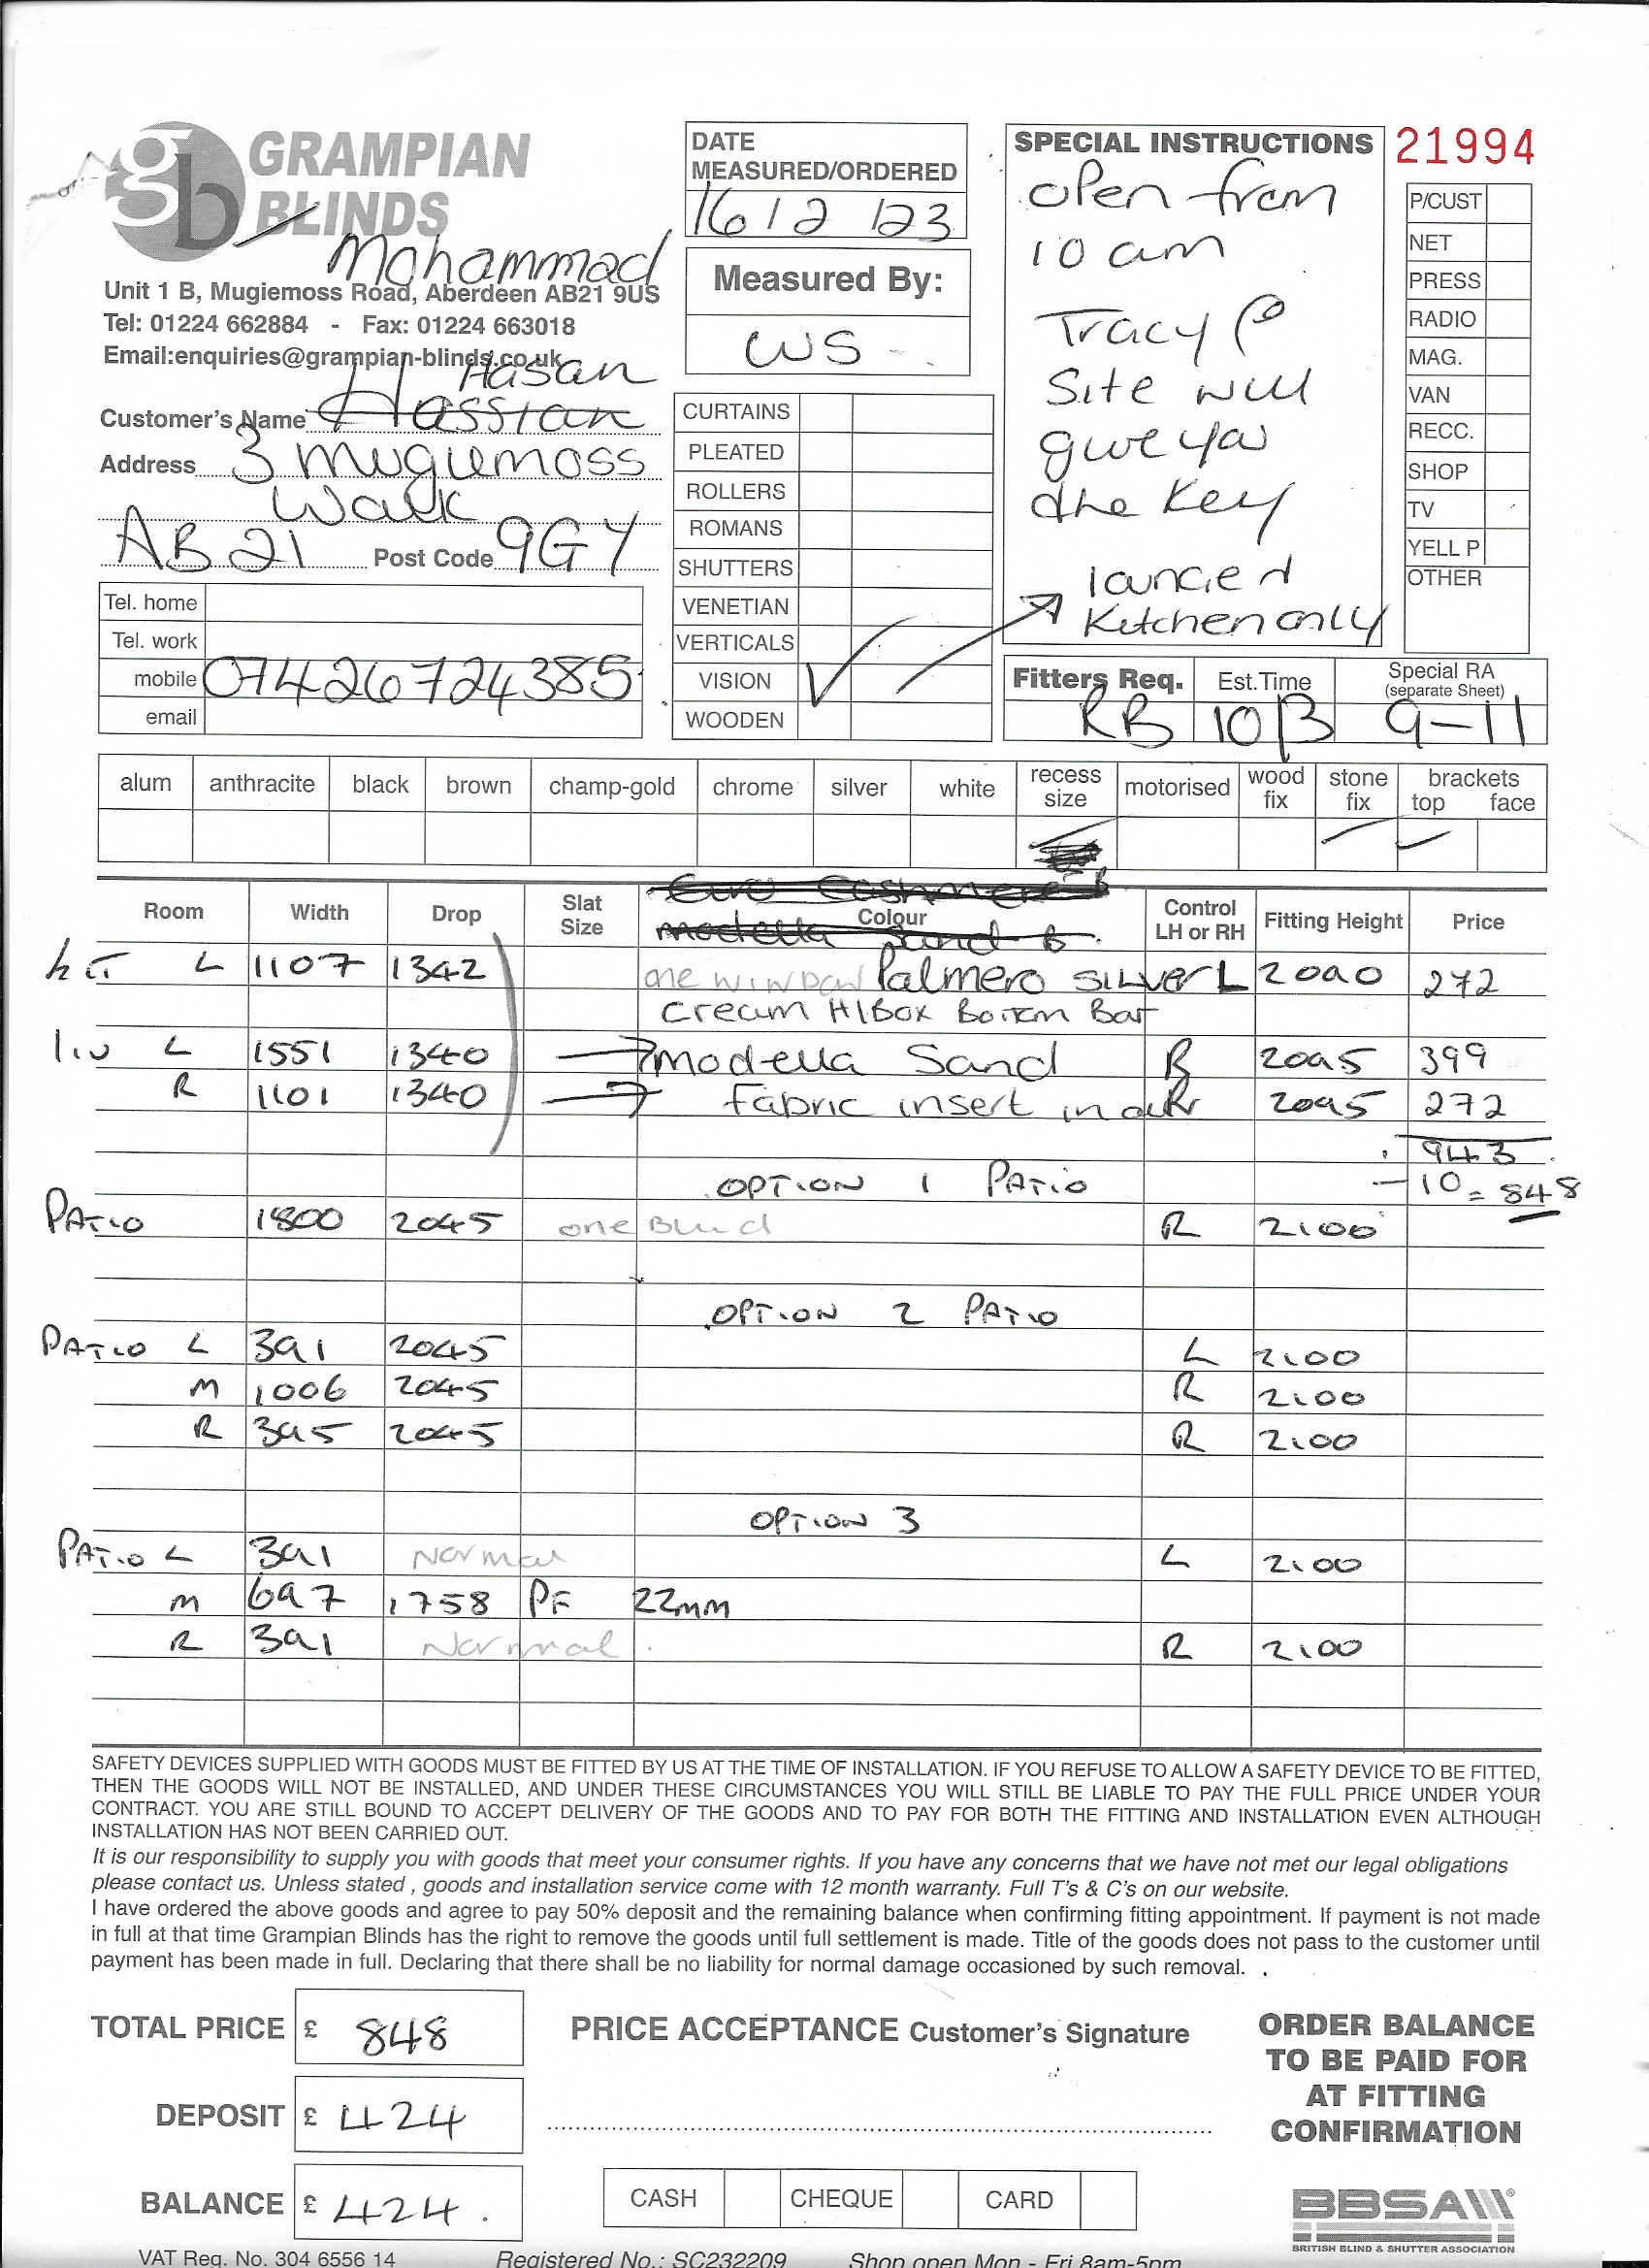 GRAMPIAN
BLINDS
gb
Mohammad
Unit 1 B, Mugiemoss Road, Aberdeen AB21 9US
Tel: 01224 662884 - Fax: 01224 663018
Email:enquiries@grampian-blinds.co.uk
Hasan
Customer's Name Hassian
Address 3 mugiemoss
Walk
AB21 Post Code 9GY
Tel. home
Tel. work
mobile 07426724385
email
DATE
MEASURED/ORDERED
16/2/23
Measured By:
WS
CURTAINS
PLEATED
ROLLERS
ROMANS
SHUTTERS
VENETIAN
VERTICALS
VISION ✓
WOODEN
SPECIAL INSTRUCTIONS
open from
10 am
Tracy @
Site will
give you
the key
lounge +
Kitchen only
21994
P/CUST
NET
PRESS
RADIO
MAG.
VAN
RECC.
SHOP
TV
YELL P
OTHER
Fitters Req. Est.Time Special RA
(separate Sheet)
RB 10/3 9-11
alum anthracite black brown champ-gold chrome silver white recess size motorised wood fix stone fix brackets top face
Euro Cashmere B
modella Sand B
Room Width Drop Slat Size Colour Control LH or RH Fitting Height Price
kit L 1107 1342 one window Palmero SILVER L 2090 272
Cream H/Box Bottom Bar
liv L 1551 1340 → modella Sand R 2095 399
R 1101 1340 → Fabric insert in all R 2095 272
943
OPTION 1 PATIO -10 = 848
PATIO 1800 2045 one Blind R 2100
OPTION 2 PATIO
PATIO L 391 2045 L 2100
M 1006 2045 R 2100
R 395 2045 R 2100
OPTION 3
PATIO L 391 Normal L 2100
M 697 1758 PF 22mm
R 391 Normal R 2100
SAFETY DEVICES SUPPLIED WITH GOODS MUST BE FITTED BY US AT THE TIME OF INSTALLATION. IF YOU REFUSE TO ALLOW A SAFETY DEVICE TO BE FITTED,
THEN THE GOODS WILL NOT BE INSTALLED, AND UNDER THESE CIRCUMSTANCES YOU WILL STILL BE LIABLE TO PAY THE FULL PRICE UNDER YOUR
CONTRACT. YOU ARE STILL BOUND TO ACCEPT DELIVERY OF THE GOODS AND TO PAY FOR BOTH THE FITTING AND INSTALLATION EVEN ALTHOUGH
INSTALLATION HAS NOT BEEN CARRIED OUT.
It is our responsibility to supply you with goods that meet your consumer rights. If you have any concerns that we have not met our legal obligations
please contact us. Unless stated , goods and installation service come with 12 month warranty. Full T's & C's on our website.
I have ordered the above goods and agree to pay 50% deposit and the remaining balance when confirming fitting appointment. If payment is not made
in full at that time Grampian Blinds has the right to remove the goods until full settlement is made. Title of the goods does not pass to the customer until
payment has been made in full. Declaring that there shall be no liability for normal damage occasioned by such removal.
TOTAL PRICE £ 848
DEPOSIT £ 424
BALANCE £ 424.
PRICE ACCEPTANCE Customer's Signature
CASH CHEQUE CARD
ORDER BALANCE
TO BE PAID FOR
AT FITTING
CONFIRMATION
BBSA
BRITISH BLIND & SHUTTER ASSOCIATION
VAT Reg. No. 304 6556 14 Registered No.: SC232209 Shop open Mon - Fri 8am-5pm